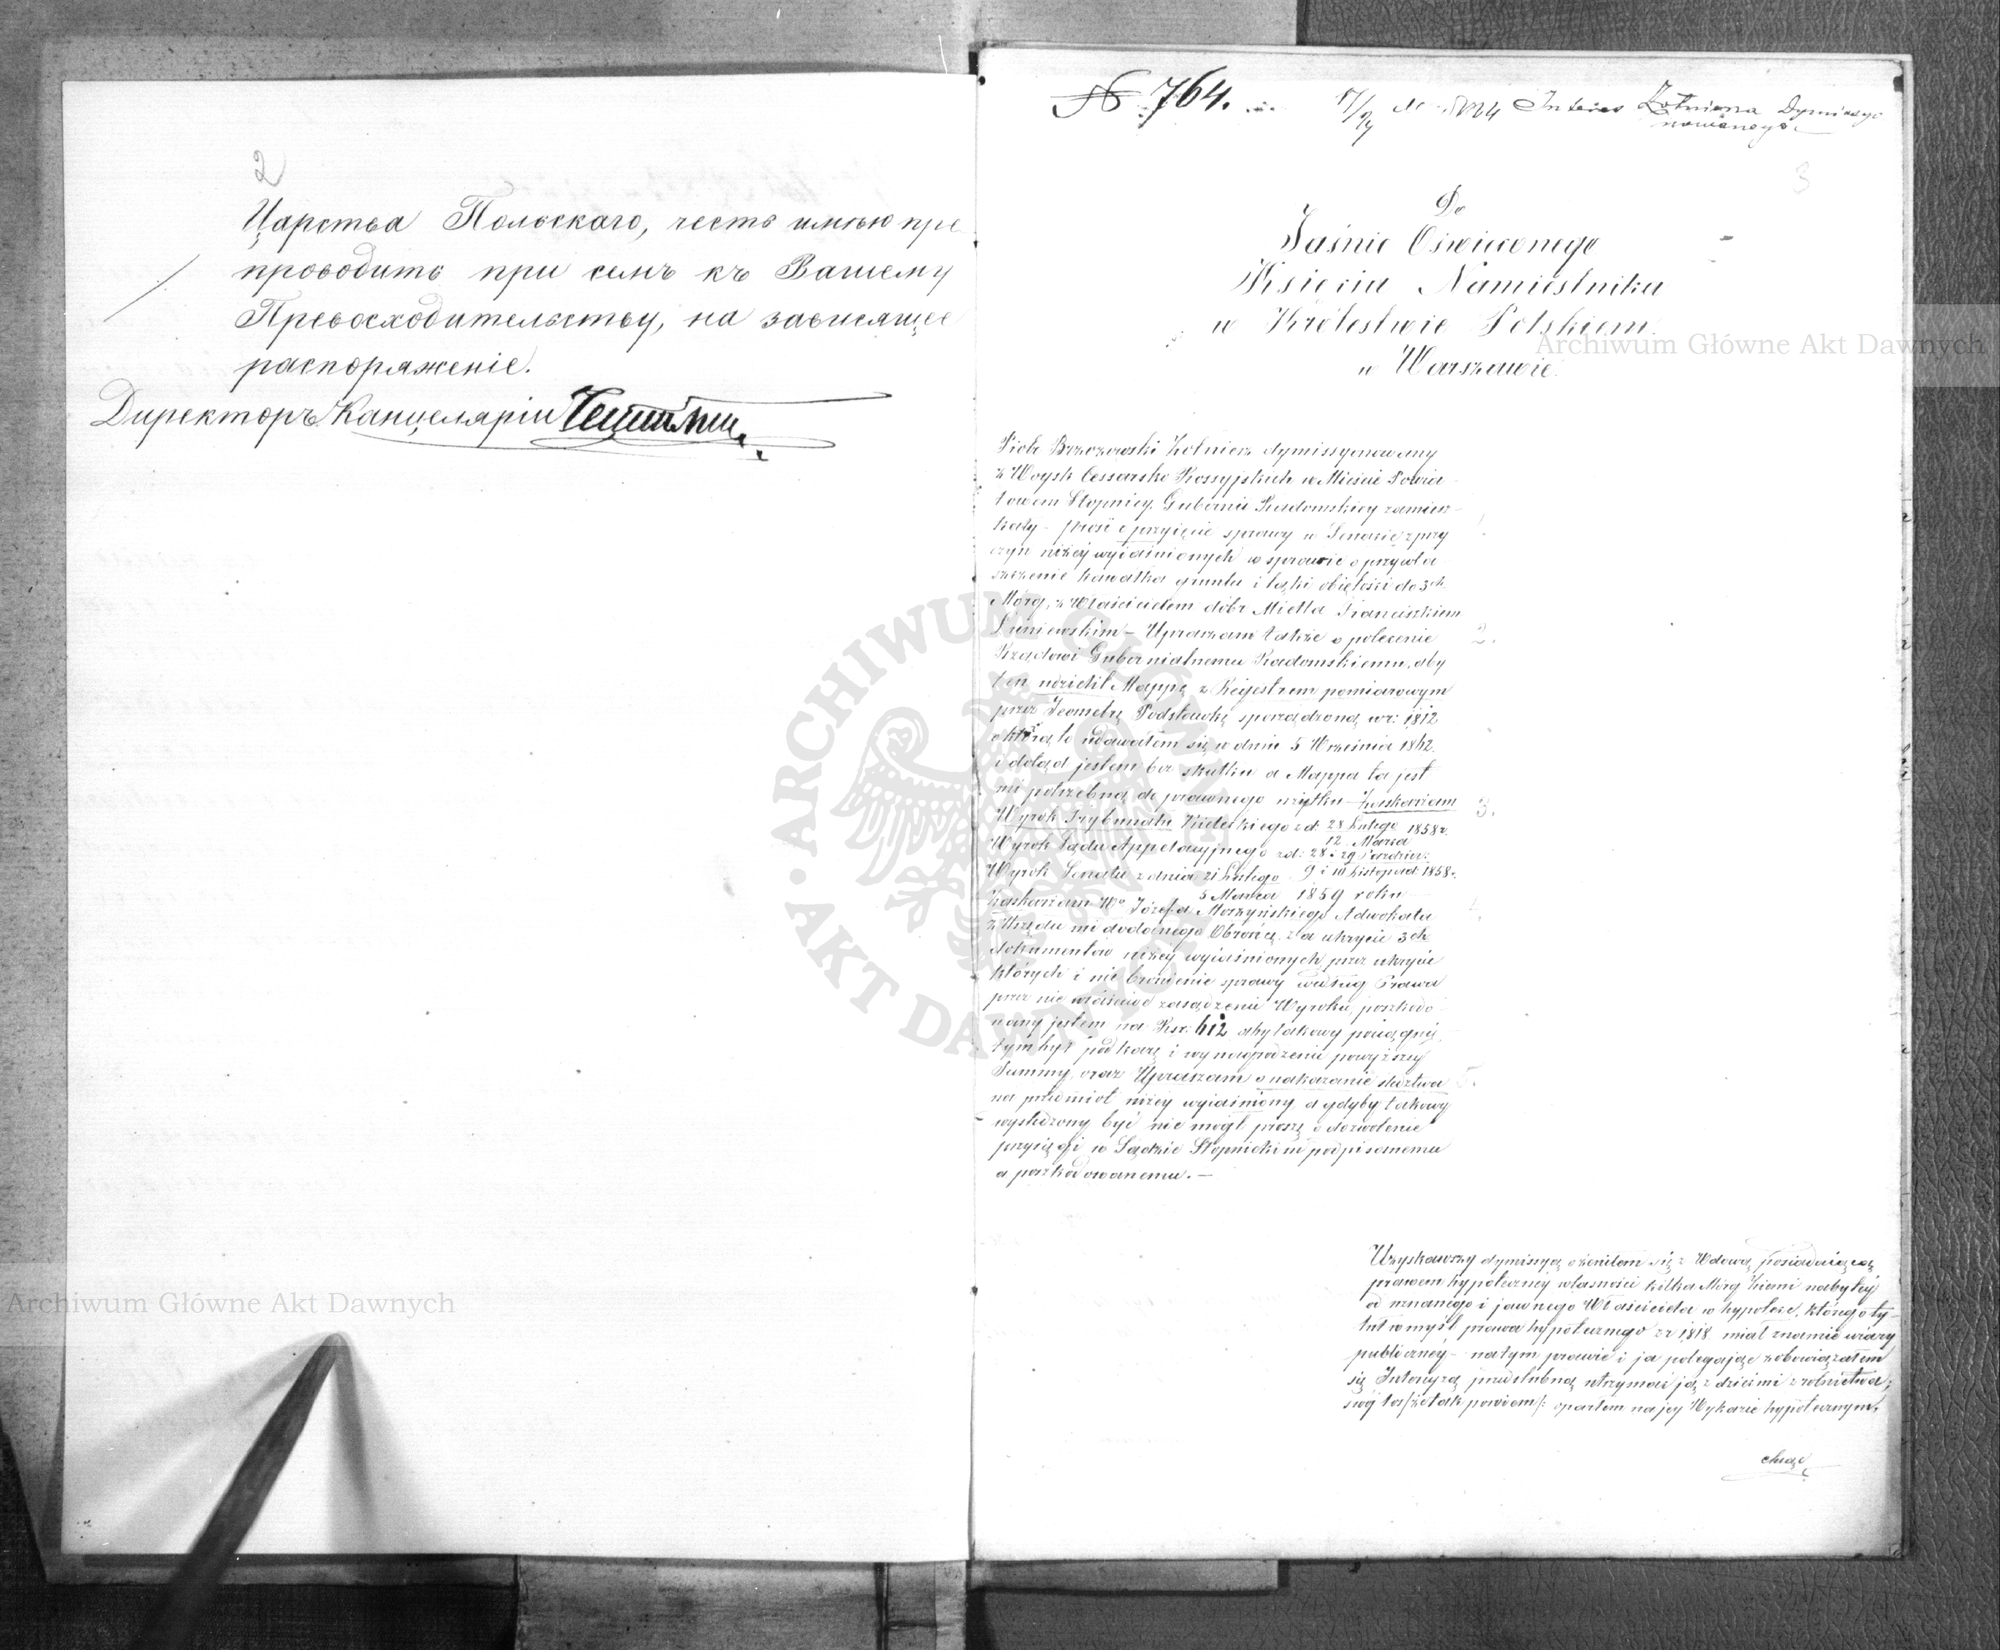 2
Царства Польскаго, честь имѣю пре
проводить при семъ къ Вашему
Превосходительству, на зависящее
распоряженіе.
Директоръ Канцеляріи
№ 764.
17/ Interes Żołnierza Dymissyo
nowanego
3
Do
Jaśnie Oświeconego
Księcia Namiestnika
w Królestwie Polskiem
w Warszawie.
Piotr Brzozowski Żołnierz dymissyonowany
z Woysk Cessarsko Rossyjskich w Mieście Powia
towem Stopnicy Gubernii Radomskiey zamiesz
kały – prosi o przyięcie sprawy w Senacie z przy
czyn niżey wyiaśnionych w sprawie o przywła
szczenie kawałka gruntu i łąki obiętości do 3ch
Mórg, z Właścicielem dóbr Mietla Franciszkiem
Łuniewskim – Upraszam także o polecenie 2.
Rządowi Gubernialnemu Radomskiemu, aby
ten udzielił Mappę z Rejestrem pomiarowym
przez Jeometrę Podstawkę sporządzoną w r: 1812
o którą to udawałem się w dniu 5 Września 1862
i dotąd jestem bez skutku a Mappa ta jest
mi potrzebną do prawnego użytku – Zaskarżam 3.
Wyrok Trybunału Kieleckiego z d: 28 Lutego 1858 r.
12 Marca
Wyrok Sądu Appelacyjnego z d: 28 i 29 Paździer:
Wyrok Senatu z dnia 21 Lutego 9 i 10 Listopad: 1858 r.
5 Marca 1859 roku
Zaskarżam Wo Józefa Morzyńskiego Adwokata
z Urzędu mi dodanego Obrońcę za ukrycie 3ch
dokumentów niżey wyiaśnionych przez ukrycie
których i nie bronienie sprawy według Prawa
przez nie właściwe zasądzenie Wyroku, poszkodo
wany jestem na Rsr. 612 aby takowy pociągnię
tym był pod karę i wynagrodzenie powyższey
Summy, oraz Upraszam o nakazanie śledztwa 5.
na przedmiot niżey wyiaśniony, a gdyby takowy
wyśledzony być nie mógł proszę o dozwolenie
przysięgi w Sądzie Stopnickim podpisanemu
a poszkodowanemu. –
Uzyskawszy dymissyą ożeniłem się z Wdową posiadaiącą
prawem hypoteczney własności kilka Mórg Ziemi nabytéy
od uznanego i jawnego Właściciela w hypotece, którego ty-
tuł w myśl prawa hypotecznego z r 1818 miał znamie wiary
publiczney – na tym prawie i ja polegając zobowiązałem
się Intercyzą przedślubną utrzymać ją z dziećmi z rolnictwa;
swój los/że tak powiem/: oparłem na jey Wykazie hypotecznym,
chcąc
Archiwum Główne Akt Dawnych
Archiwum Główne Akt Dawnych
ARCHIWUM GŁÓWNE AKT DAWNYCH